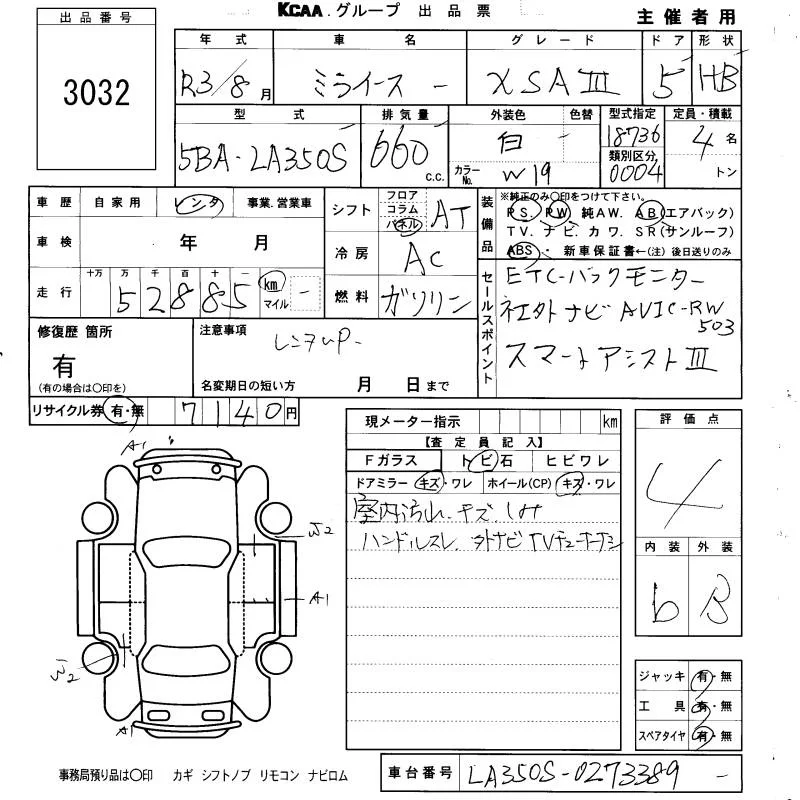 KCAA.グループ 出品票
主催者用
出品番号
3032
年式 車名 グレード ドア 形状
R3/8月 ミライース - X SAⅢ 5 HB
型式 排気量 外装色 色替 型式指定 定員・積載
5BA-LA350S 660 c.c. 白 - 18736 4名
カラーNo. W19 類別区分 0004 トン
車歴 自家用 レンタ 事業.営業車
車検 年 月
走行 十万 万 千 百 十 一
52885 km マイル -
シフト フロア コラム パネル AT
冷房 AC
燃料 ガソリン
装備品 ※純正のみ〇印をつけて下さい。
PS. PW. 純AW. AB(エアバック)
TV. ナビ. カワ. SR(サンルーフ)
ABS・ 新車保証書←(注) 後日送りのみ
セールスポイント
ETC-バックモニター
社外ナビ AVIC-RW
503
スマートアシストⅢ
修復歴 箇所
有
(有の場合は〇印を)
注意事項
レンタUP-
名変期日の短い方 月 日まで
リサイクル券 有・無 7140円
現メーター指示 km
【査定員記入】
Fガラス トビ石 ヒビワレ
ドアミラー キズ・ワレ ホイール(CP) キズ・ワレ
室内汚れ.キズ.しみ
ハンドルスレ. 外ナビ TVチューナーナシ
評価点
4
内装 外装
b B
A1
W2
A1
W2
A1
ジャッキ 有・無
工具 有・無
スペアタイヤ 有・無
事務局預り品は〇印 カギ シフトノブ リモコン ナビロム
車台番号 LA350S-0273389 -